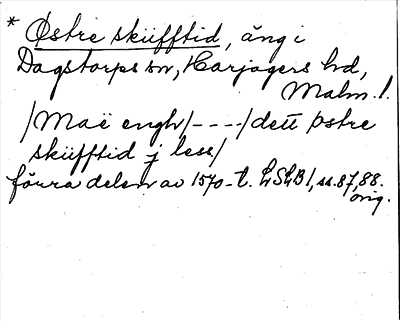 * Østre skifftid, äng i
Dagstorps sn, Harjagers hd,
Malm. l.
/Maë engh/----/dett østre
skifftid j less/
förra delen av 1570-t. LSLB1, ss. 87, 88.
orig.